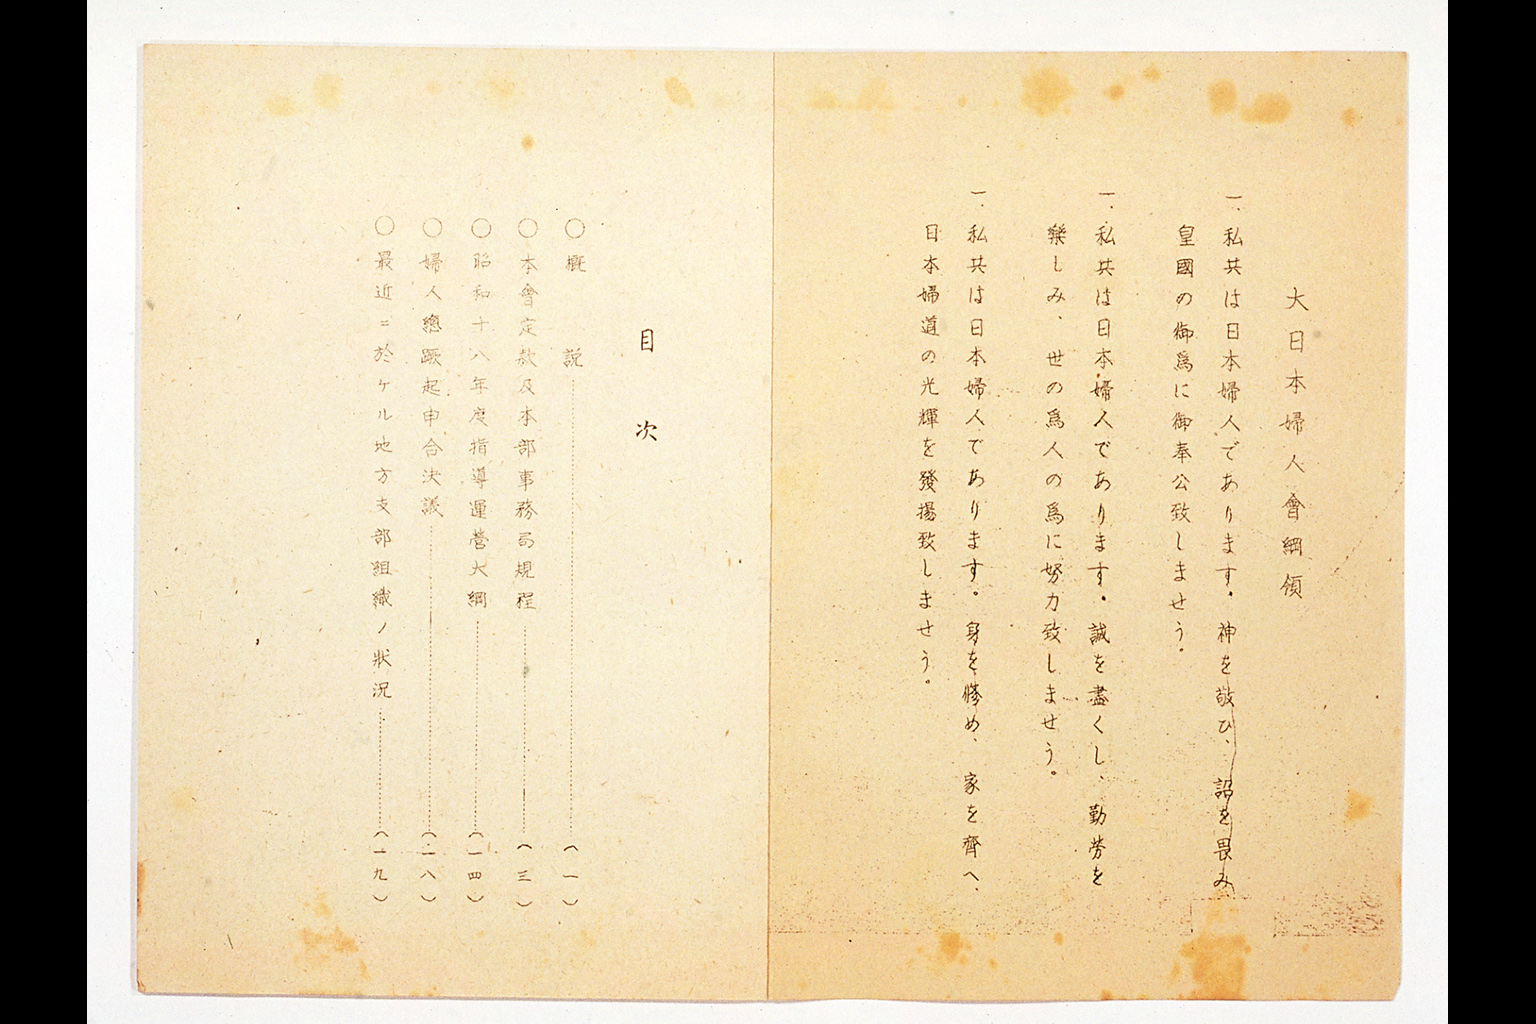 大日本婦人會綱領
一、私共は日本婦人であります。神を敬ひ、詔を畏み
皇國の御爲に御奉公致しませう。
一、私共は日本婦人であります。誠を盡くし、勤労を
樂しみ、世の爲人の爲に努力致しませう。
一、私共は日本婦人であります。身を修め、家を齊へ、
日本婦道の光輝を發揚致しませう。
目次
〇概説………（一）
〇本會定款及本部事務局規程………（三）
〇昭和十八年度指導運營大綱………（一四）
〇婦人總蹶起申合決議………（一八）
〇最近ニ於ケル地方支部組織ノ狀況………（一九）